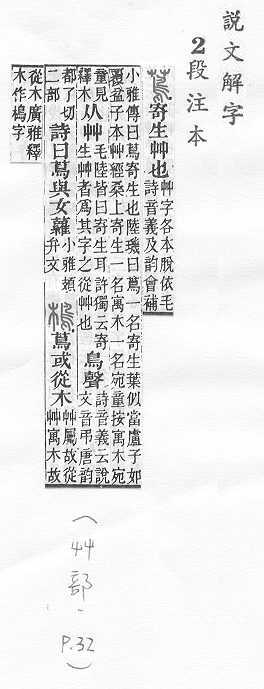 說文解字
2段注本
蔦寄生艸也艸字各本脫依毛詩音義及韵會補
小雅傳曰蔦寄生也陸璣曰蔦一名寄生葉似當盧子如
覆盆子本艸經桑上寄生一名寓木一名宛童按寓木宛
童見釋木从艸毛陸皆曰寄生耳許獨云寄生艸者爲其字之從艸也鳥聲詩音義云說文音弔唐韵
都了切二部詩曰蔦與女蘿小雅頍弁文樢蔦或從木艸屬故從艸寓木故
從木廣雅釋木作樢字
(艸部-P.32)